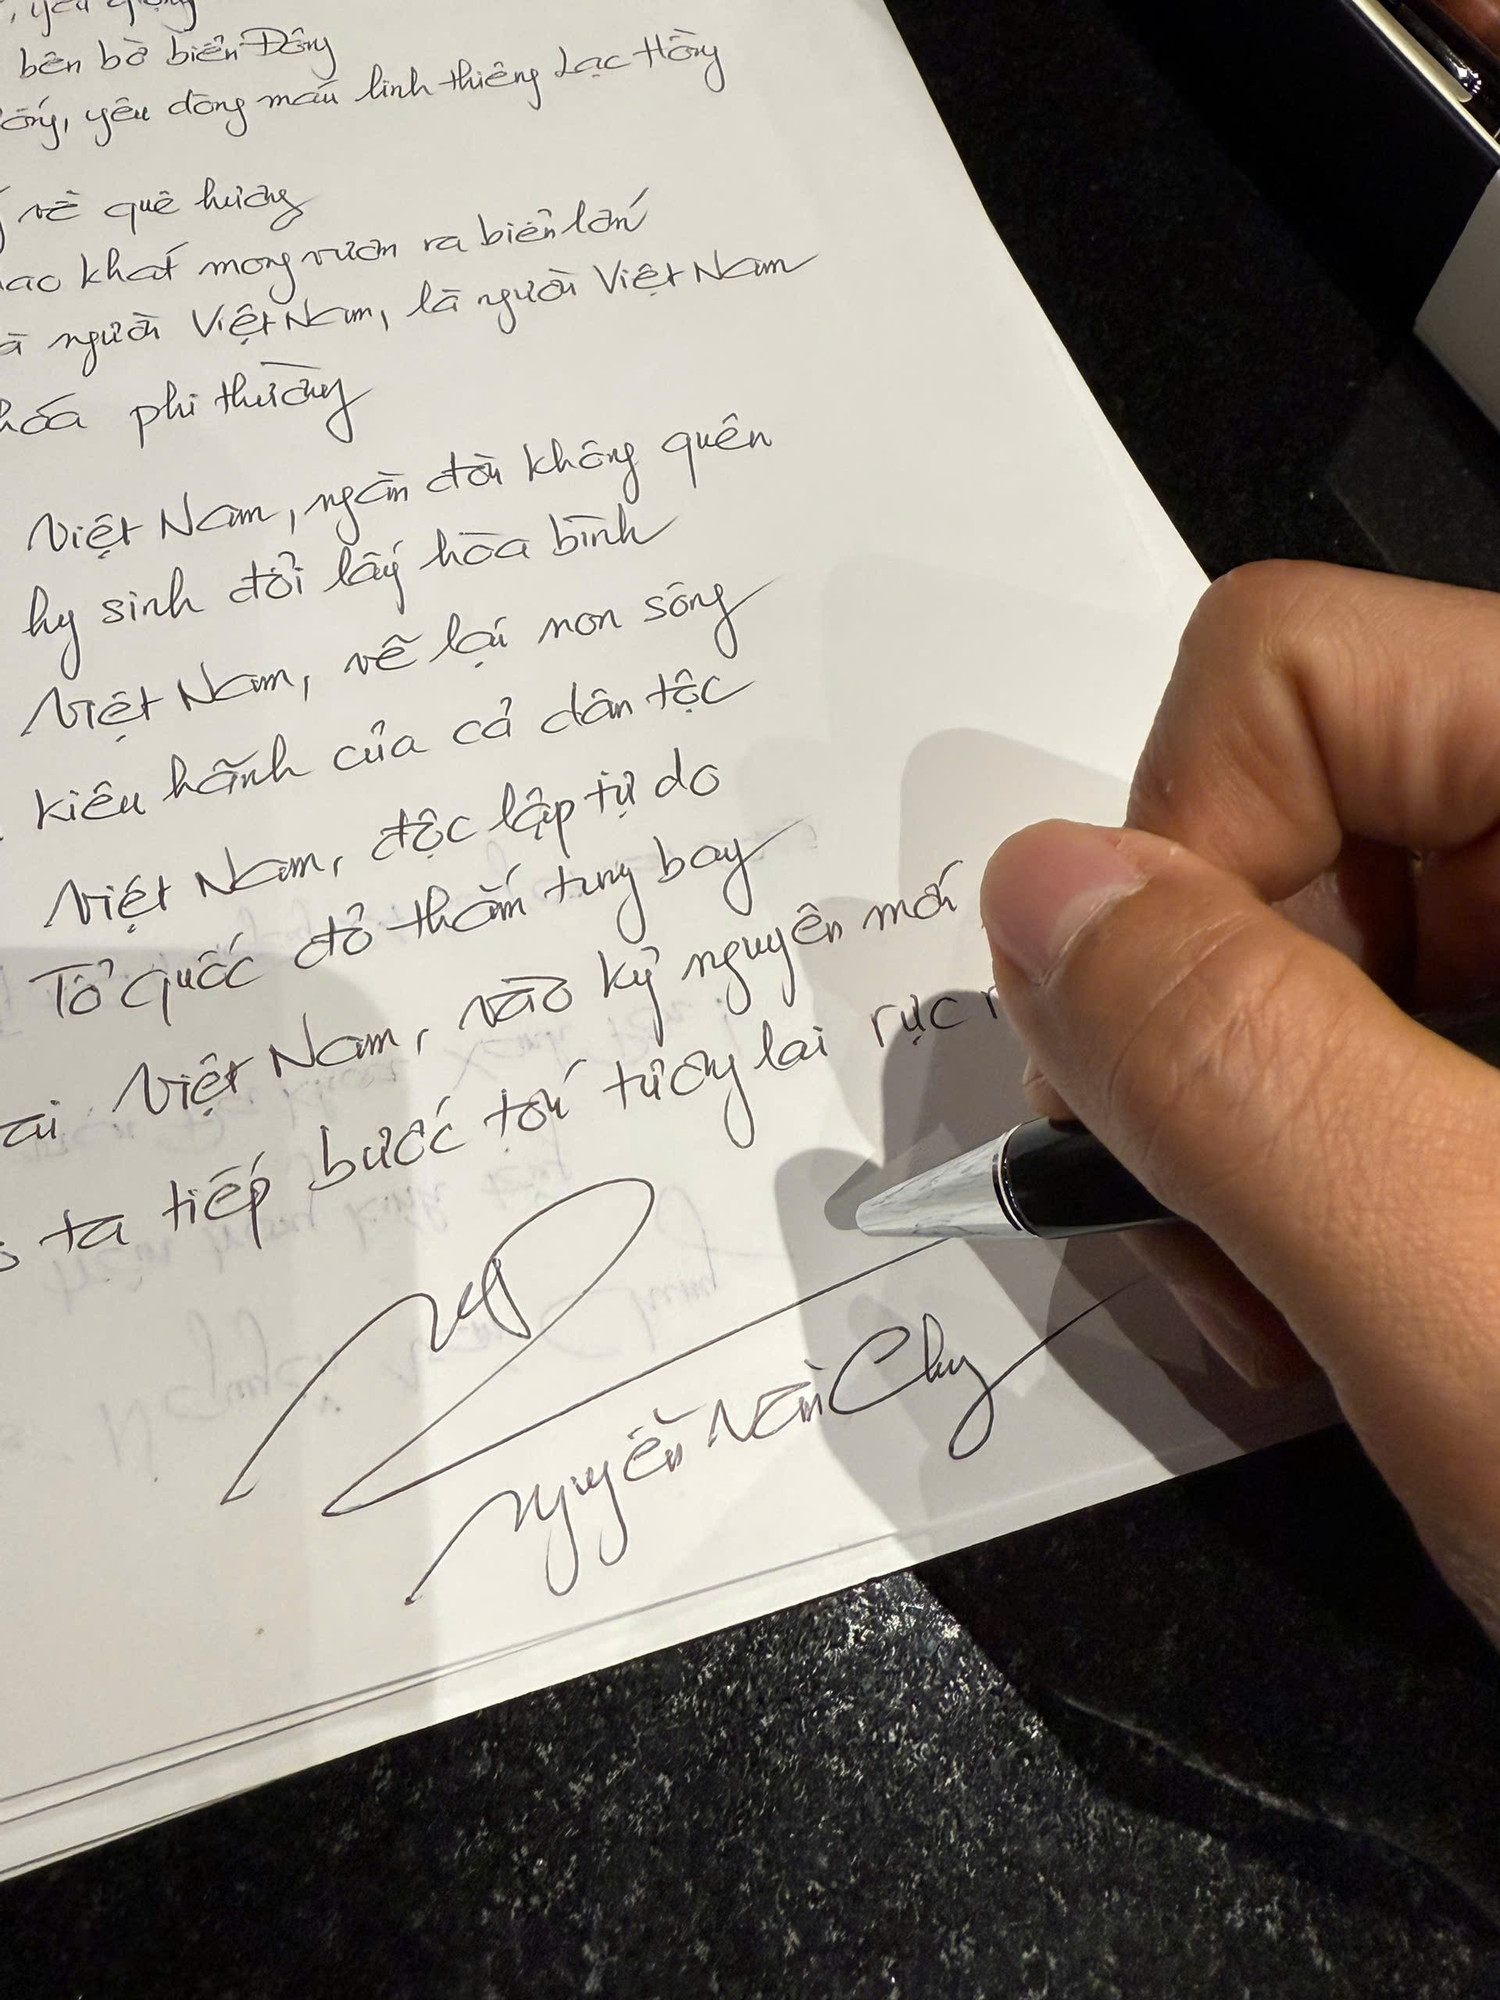 , yêu giọng
bên bờ biển Đông
yêu dòng máu linh thiêng Lạc Hồng
về quê hương
khát mong vươn ra biển lớn
là người Việt Nam, là người Việt Nam
hóa phi thường
Việt Nam, ngàn đời không quên
hy sinh đổi lấy hòa bình
Việt Nam, vẽ lại non sông
kiêu hãnh của cả dân tộc
Việt Nam, độc lập tự do
Tổ quốc đỏ thắm tung bay
Việt Nam, vào kỷ nguyên mới
ta tiếp bước tới tương lai rực
Nguyễn Văn Chung